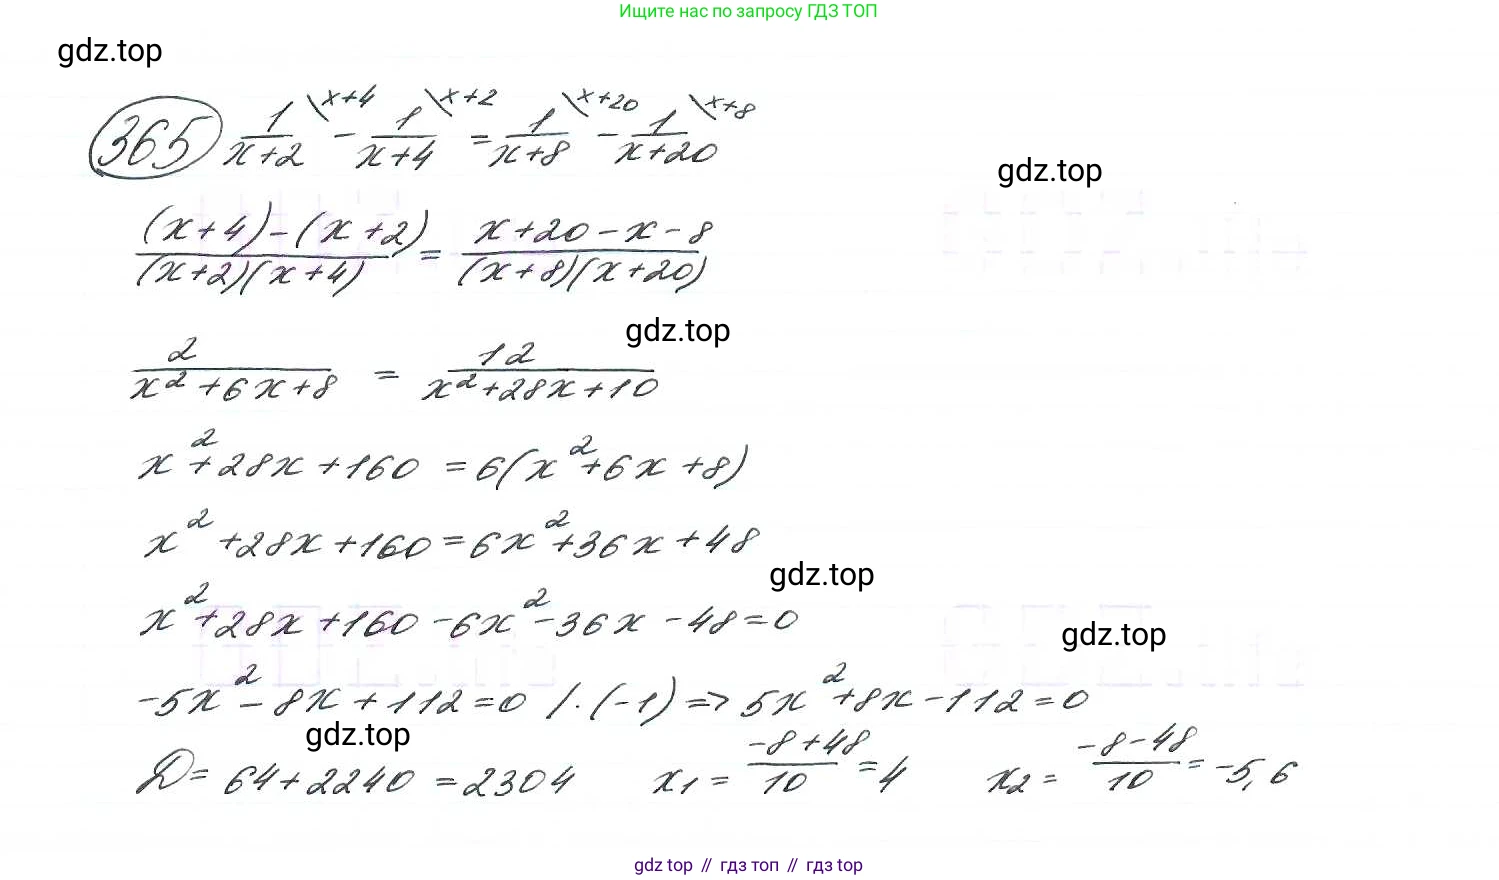 Ищите нас по запросу ГДЗ ТОП
gdz.top
365 1/(x+2) \x+4 - 1/(x+4) \x+2 = 1/(x+8) \x+20 - 1/(x+20) \x+8
gdz.top
((x+4)-(x+2))/((x+2)(x+4)) = (x+20-x-8)/((x+8)(x+20))
gdz.top
2/(x²+6x+8) = 12/(x²+28x+10)
x²+28x+160 = 6(x²+6x+8)
x²+28x+160=6x²+36x+48
gdz.top
x²+28x+160-6x²-36x-48=0
gdz.top
-5x²-8x+112=0 /·(-1) => 5x²+8x-112=0
gdz.top
D= 64+2240 =2304 x₁ = (-8+48)/10 =4 x₂ = (-8-48)/10 = -5,6
gdz top // гдз топ // гдз top